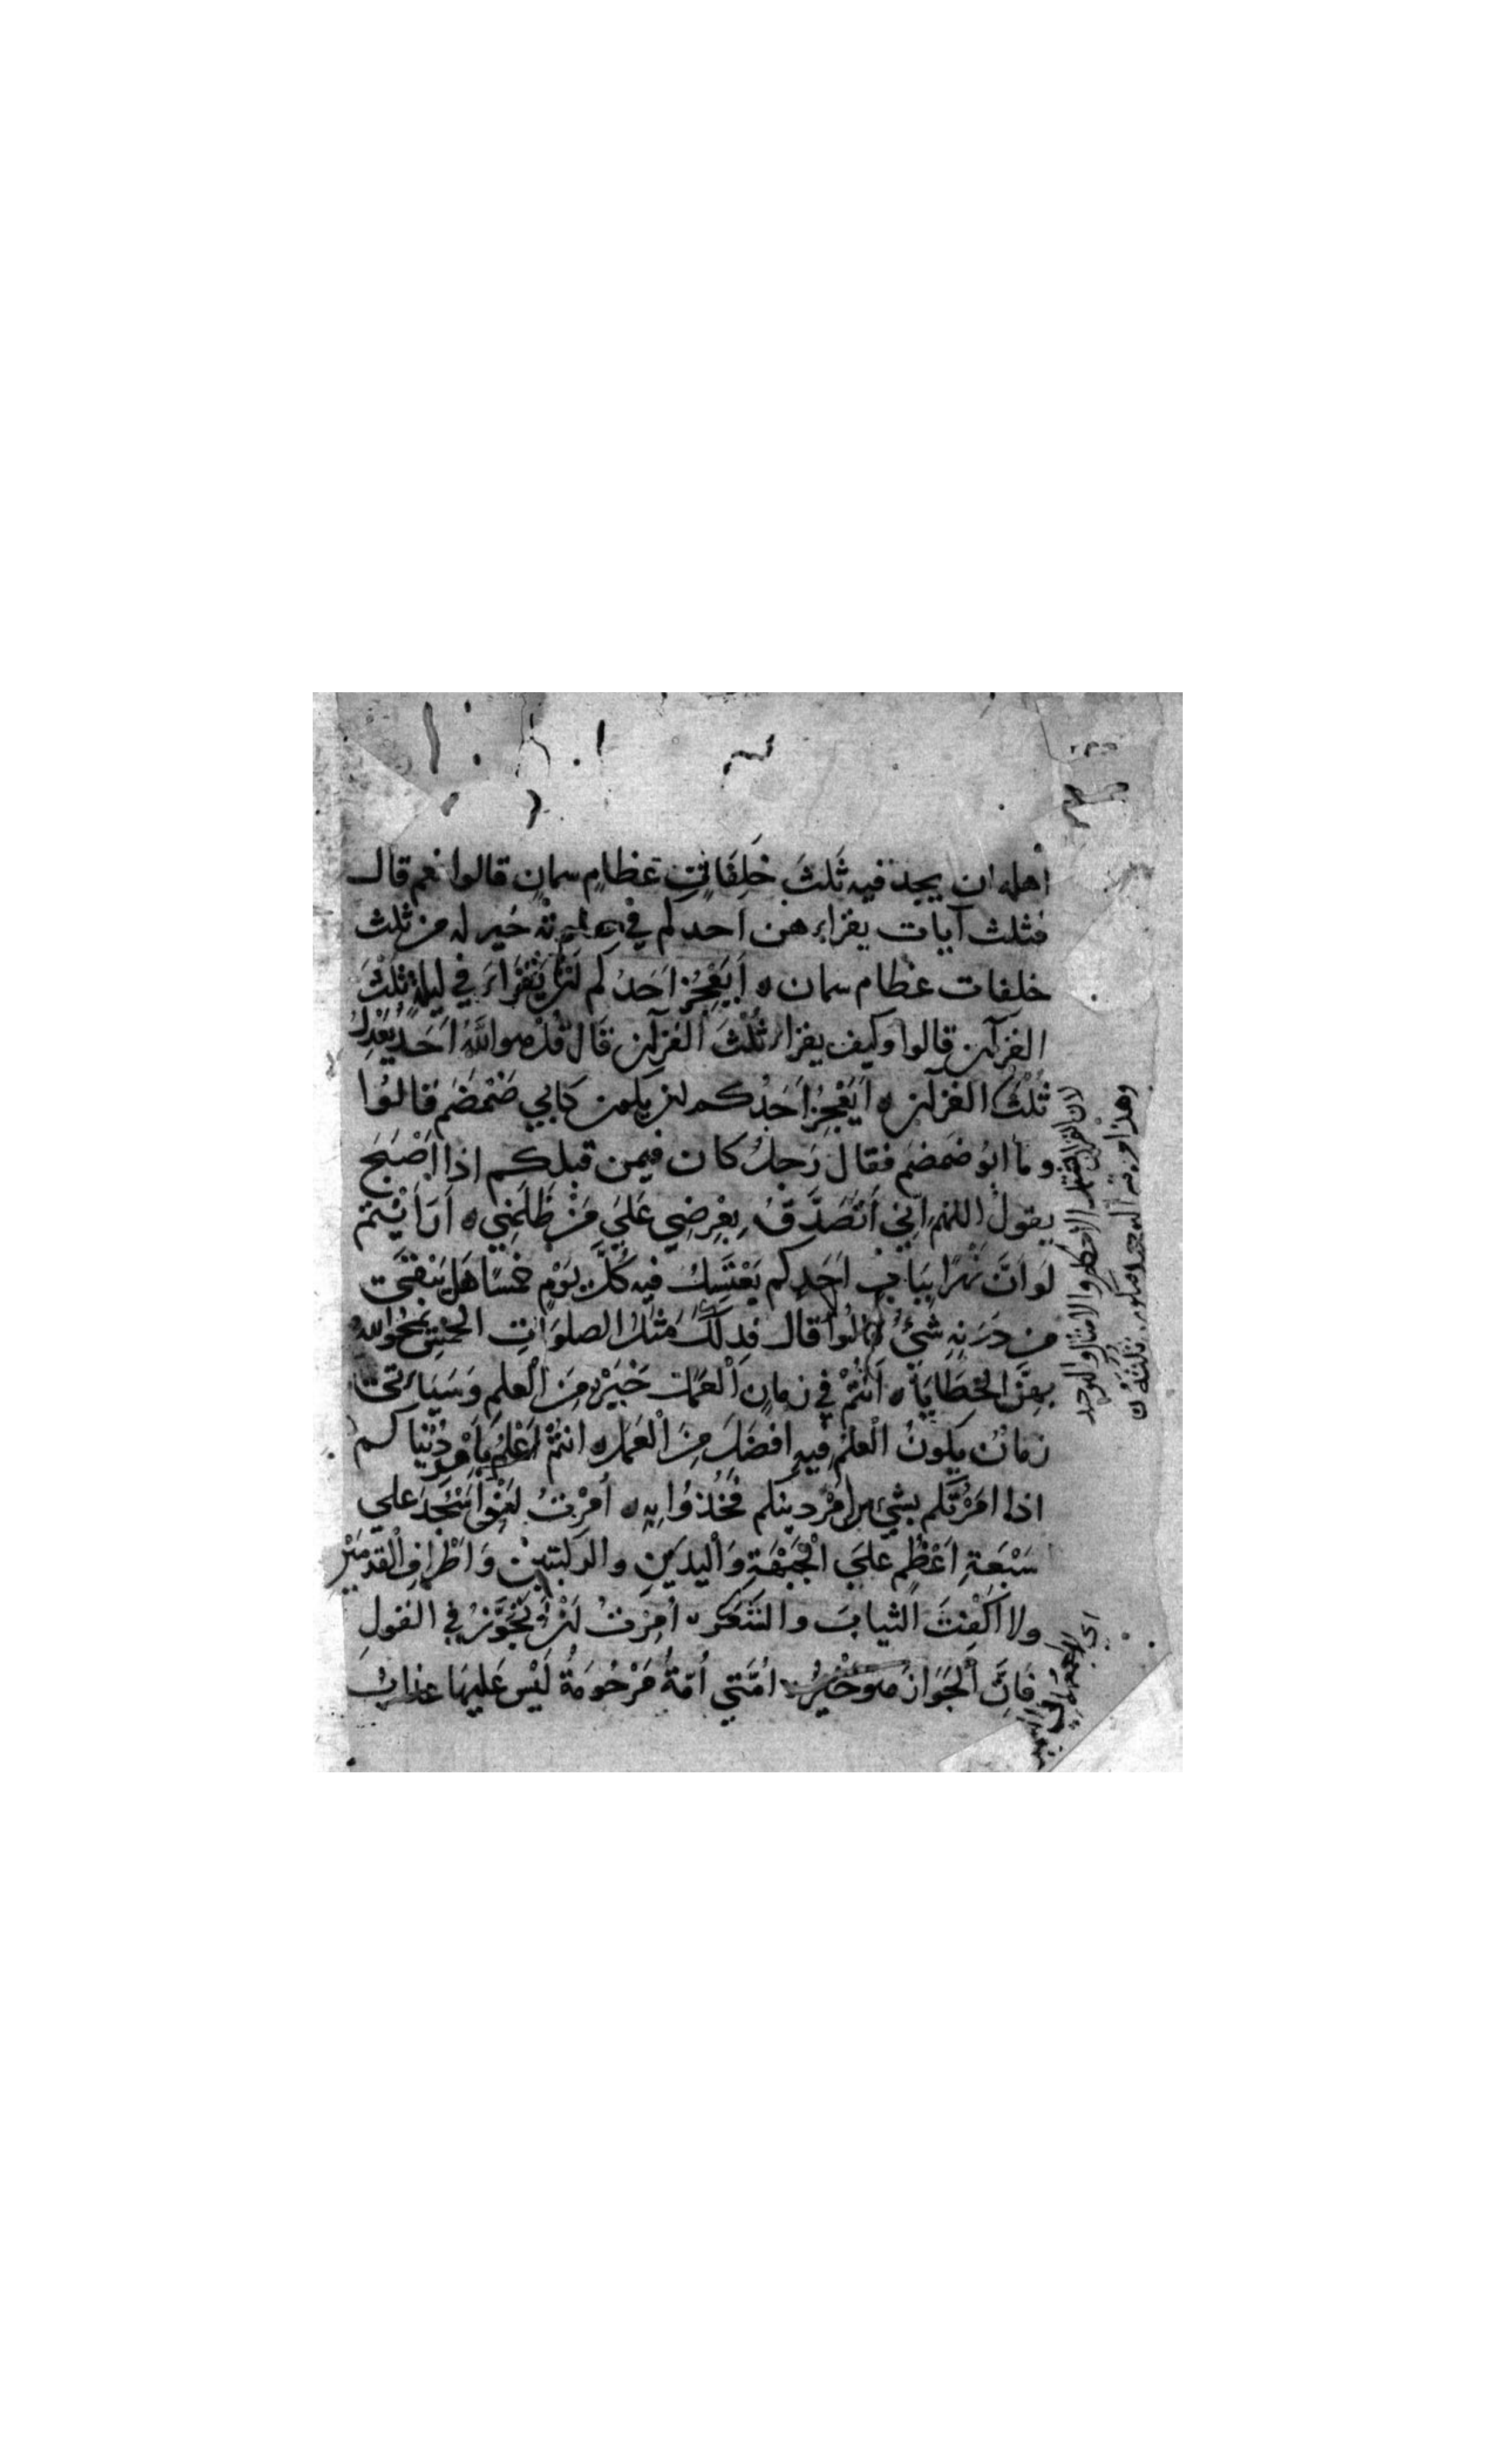 اهله ان يجد فيه ثَلثَ خَلِفَاتٍ عظامٍ سمانٍ قالوا نعم قال
فثلث آيات يقراء هن احدكم في صلوته خير له من ثلث
خلفات عظام سمان ه اَيَعْجِزُ اَحَدُكم اَنْ يَقْرَاءَ في ليلةٍ ثُلثَ
القرآن قالوا وكيف يقراء ثُلْثَ القرآن قَالَ قُلْ هو اللَّهُ اَحَدٌ يَعْدِلُ
ثُلْثَ القرآن ه اَيَعْجِزُ اَحَدُكم ان يكون كَابي ضَمْضَم قَالُوا
وما ابُو ضَمضَم فقالَ رَجلٌ كان فيمن قبلكم اذا اَصْبَحَ
يقولُ اللهُمَّ اِنّي اَتَصَدَّقُ بِعِرْضِي عَلَي مَنْ ظَلَمَنِي ه اَرَاَيْتُمْ
لَو اَنَّ نَهْرًا بِبَابِ اَحَدِكم يَغْتَسِلُ فيه كُلَّ يَوْمٍ خمسًا هَلْ يَبْقَى
من دَرَنِهِ شَيْءٌ قالُوا لا قال فذلكَ مَثَلُ الصلوَاتِ الخمسِ يَمْحُو اللهُ
بِهِنَّ الخَطَايَا ه اَنْتُمْ فِي زمانٍ اَلْعَمَلُ خَيْرٌ مِنَ الْعلمِ وَسَيَاتي
زمانٌ يكونُ الْعلمُ فيهِ افضَلَ مِنَ الْعَمَلِ ه انتُمْ اَعْلَمُ بِاَمْرِ دُنْيَاكم
اذا اَمَرْتُكُم بِشَيْءٍ من اَمْرِ دينكم فَخُذُوا بِهِ ه اُمِرْتُ اَنْ اَسْجُدَ علي
سَبْعَةِ اَعْظُمٍ عَلَي الْجَبْهَةِ وَالْيَدَيْنِ والركبتَيْنِ وَاَطْرافِ الْقَدَمَيْنِ
ولا اَكْفِتَ الثيابَ والشَّعَر ه اُمِرْتُ اَنْ اَتَجَوَّزَ في القولِ
فَاِنَّ اَلْجَوَازَ هو خَيْرٌ ه اُمَّتي اُمَّةٌ مَرْحُومَةٌ لَيْسَ عَليها عذابٌ